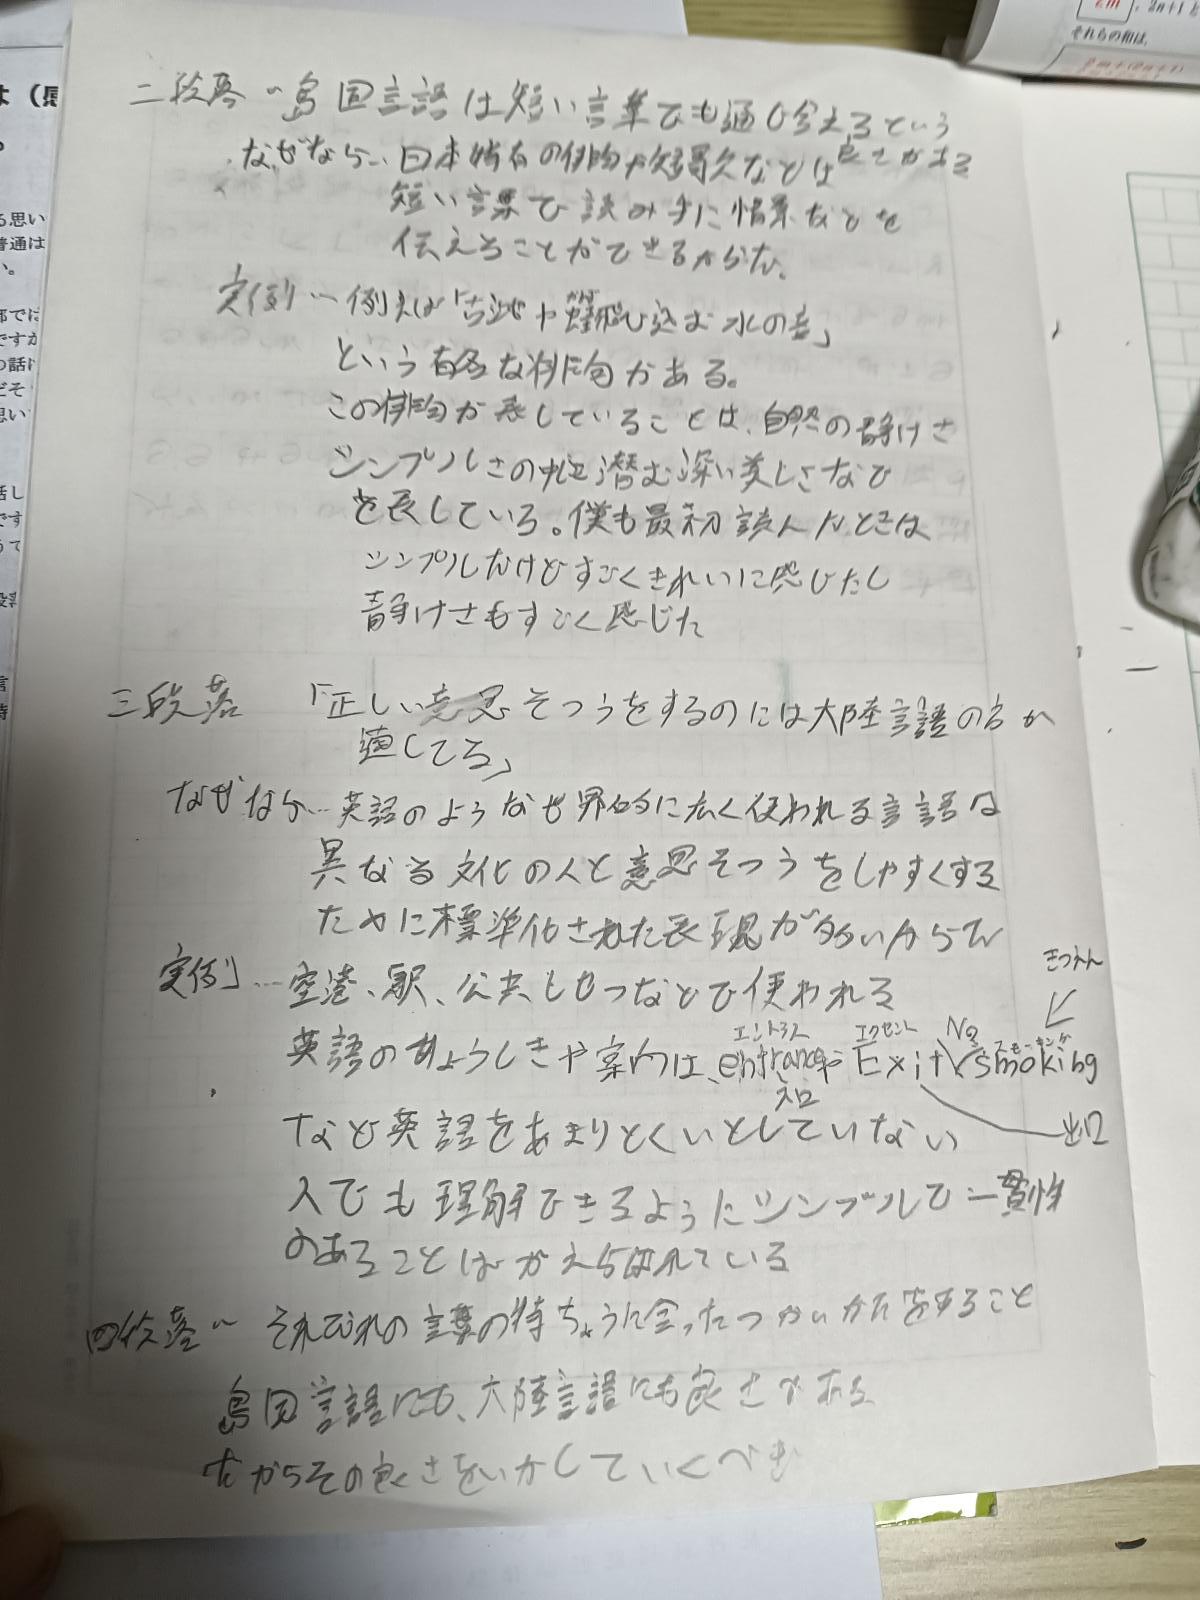 二段落… 島国言語は短い言葉でも通じ合えるという
良さがある
なぜなら… 日本特有の俳句や短歌などは
短い言葉で読み手に情景などを
伝えることができるからだ。
実例… 例えば「古池や蛙飛び込む水の音」
かわず
という有名な俳句がある。
この俳句が表していることは、自然の静けさ
シンプルさの中に潜む深い美しさなど
を表している。僕も最初読んだときは
シンプルだけどすごくきれいに感じたし
静けさもすごく感じた
三段落 「正しい意思そつうをするのには大陸言語の方が
適してる」
なぜなら… 英語のような世界的に広く使われる言語は
異なる文化の人と意思そつうをしやすくする
ために標準化された表現が多いからだ
実例… 空港、駅、公共しせつなどで使われる
きつえん
英語のひょうしきや案内は、entranceやExit No smoking
エントランス エクセント スモーキング
入口
出口
など英語をあまりとくいとしていない
人でも理解できるようにシンプルで一貫性
のあることばがえらばれている
四段落… それぞれの言葉の特ちょうに合ったつかいかたをすること
島国言語にも、大陸言語にも良さがある
だからその良さをいかしていくべき
それらの和は、
2m
, 2n+1と